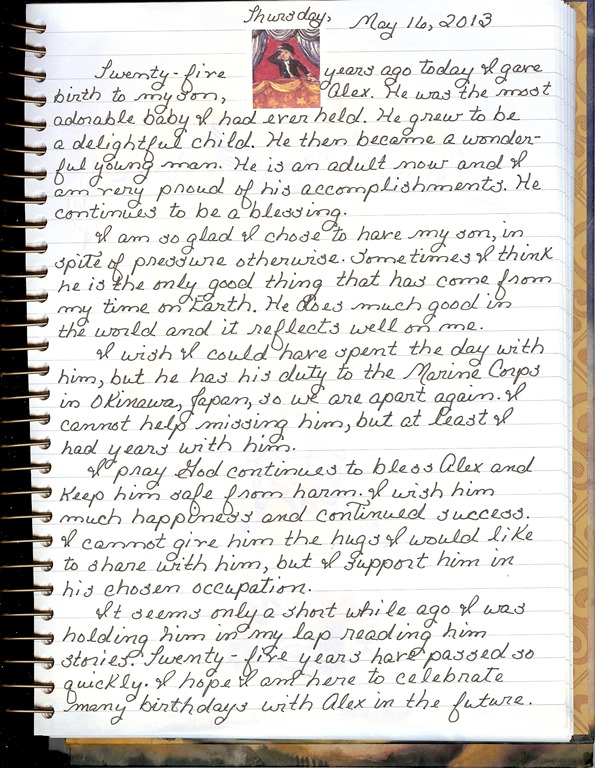 Thursday, May 16, 2013
Twenty-five years ago today I gave
birth to my son, Alex. He was the most
adorable baby I had ever held. He grew to be
a delightful child. He then became a wonder-
ful young man. He is an adult now and I
am very proud of his accomplishments. He
continues to be a blessing.
I am so glad I chose to have my son, in
spite of pressure otherwise. Sometimes I think
he is the only good thing that has come from
my time on Earth. He does much good in
the world and it reflects well on me.
I wish I could have spent the day with
him, but he has his duty to the Marine Corps
in Okinawa, Japan, so we are apart again. I
cannot help missing him, but at least I
had years with him.
I pray God continues to bless Alex and
keep him safe from harm. I wish him
much happiness and continued success.
I cannot give him the hugs I would like
to share with him, but I support him in
his chosen occupation.
It seems only a short while ago I was
holding him in my lap reading him
stories. Twenty-five years have passed so
quickly. I hope I am here to celebrate
many birthdays with Alex in the future.